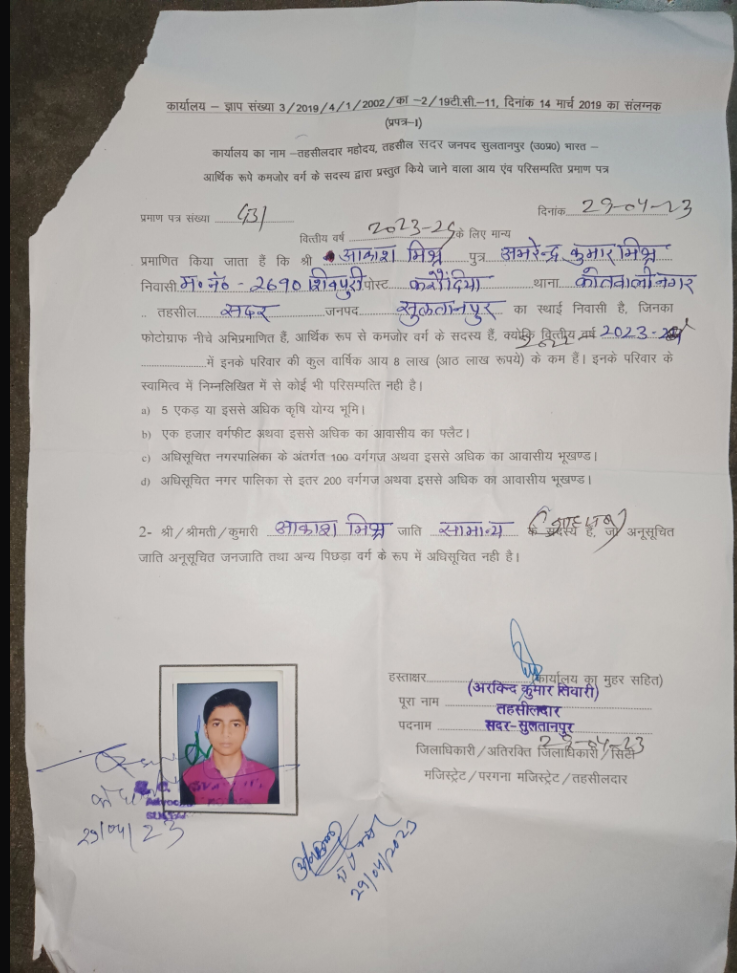 कार्यालय – ज्ञाप संख्या 3/2019/4/1/2002/का –2/19टी.सी.–11, दिनांक 14 मार्च 2019 का संलग्नक
(प्रपत्र–I)
कार्यालय का नाम –तहसीलदार महोदय, तहसील सदर जनपद सुलतानपुर (उ0प्र0) भारत –
आर्थिक रूपे कमजोर वर्ग के सदस्य द्वारा प्रस्तुत किये जाने वाला आय एंव परिसम्पत्ति प्रमाण पत्र
प्रमाण पत्र संख्या दिनांक 29-04-23
वित्तीय वर्ष 2023-24 के लिए मान्य
प्रमाणित किया जाता हैं कि श्री आकाश मिश्र पुत्र अमरेन्द्र कुमार मिश्र
निवासी म० नं० - 2690 शिवपुरी पोस्ट करौंदिया थाना कोतवाली नगर
तहसील सदर जनपद सुलतानपुर का स्थाई निवासी है, जिनका
फोटोग्राफ नीचे अभिप्रमाणित हैं, आर्थिक रूप से कमजोर वर्ग के सदस्य हैं, क्योंकि वित्तीय वर्ष 2023-24
में इनके परिवार की कुल वार्षिक आय 8 लाख (आठ लाख रूपये) के कम हैं। इनके परिवार के
स्वामित्व में निम्नलिखित में से कोई भी परिसम्पत्ति नही है।
a) 5 एकड़ या इससे अधिक कृषि योग्य भूमि।
b) एक हजार वर्गफीट अथवा इससे अधिक का आवासीय का फ्लैट।
c) अधिसूचित नगरपालिका के अंतर्गत 100 वर्गगज अथवा इससे अधिक का आवासीय भूखण्ड।
d) अधिसूचित नगर पालिका से इतर 200 वर्गगज अथवा इससे अधिक का आवासीय भूखण्ड।
2- श्री/श्रीमती/कुमारी आकाश मिश्र जाति सामान्य (ब्राह्मण) के सदस्य है, जो अनुसूचित
जाति अनुसूचित जनजाति तथा अन्य पिछड़ा वर्ग के रूप में अधिसूचित नही है।
हस्ताक्षर (कार्यालय का मुहर सहित)
(अरविन्द कुमार तिवारी)
पूरा नाम तहसीलदार
पदनाम सदर-सुलतानपुर
29-04-23
जिलाधिकारी/अतिरिक्त जिलाधिकारी/सिटी
मजिस्ट्रेट/परगना मजिस्ट्रेट/तहसीलदार
Advocate
29/04/23
29/04/2023